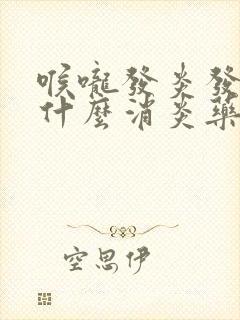 喉嚨發炎發
什麼消炎藥
空思伊